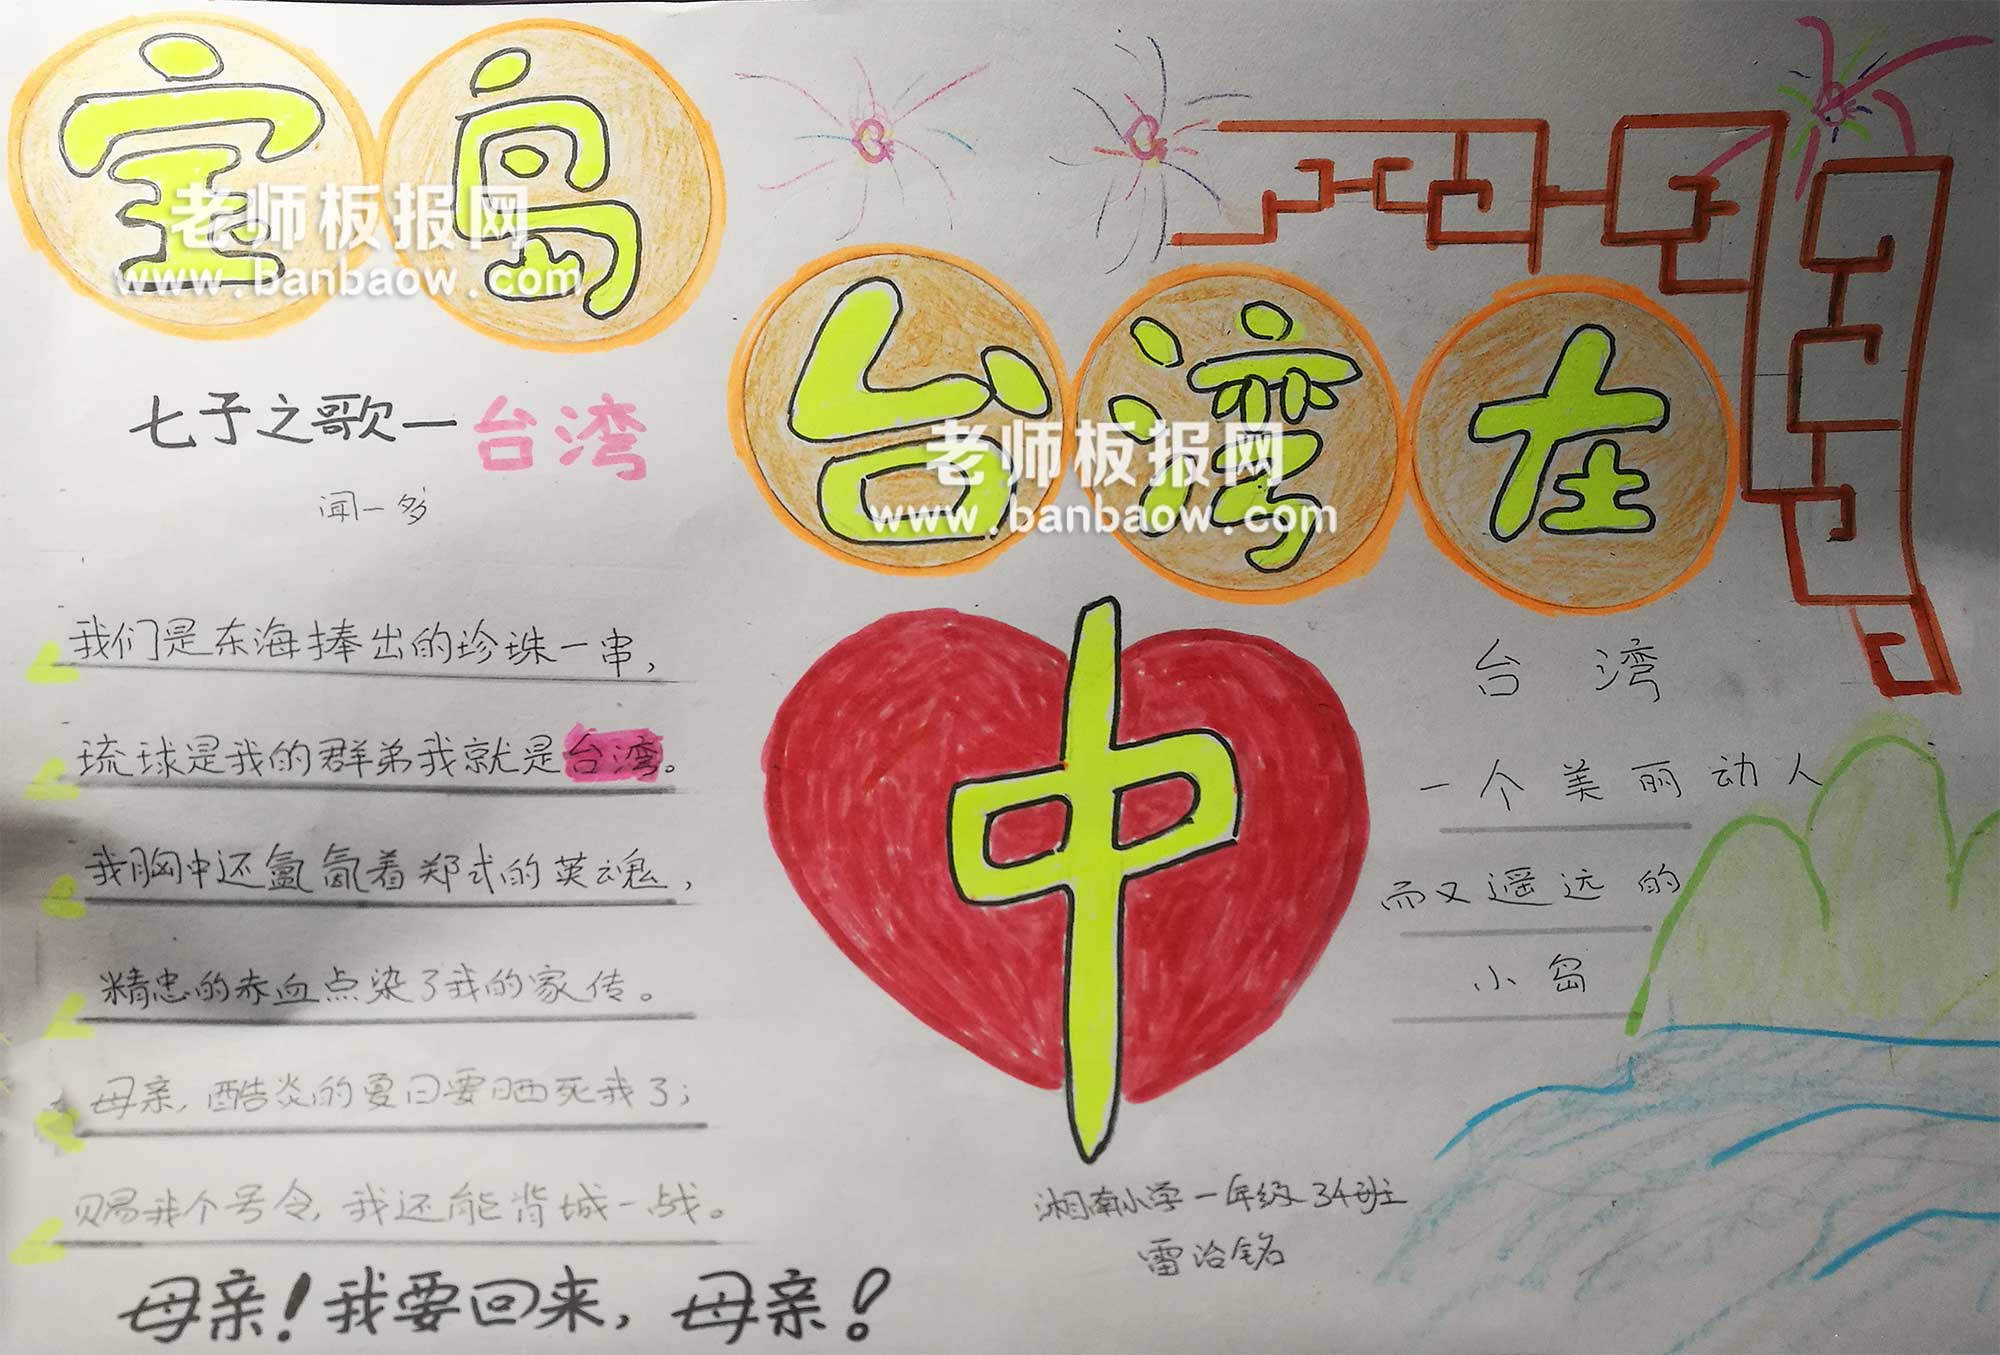 宝岛
台湾在
中
老师板报网
www.banbaow.com
老师板报网
www.banbaow.com
七子之歌一台湾
闻一多
我们是东海捧出的珍珠一串，
琉球是我的群弟我就是台湾。
我胸中还氲氤着郑式的英魂，
精忠的赤血点染了我的家传。
母亲，酷炎的夏日要晒死我了；
赐我个号令，我还能背城一战。
母亲！我要回来，母亲！
台湾
一个美丽动人
而又遥远的
小岛
湘南小学一年级34班
雷治铭